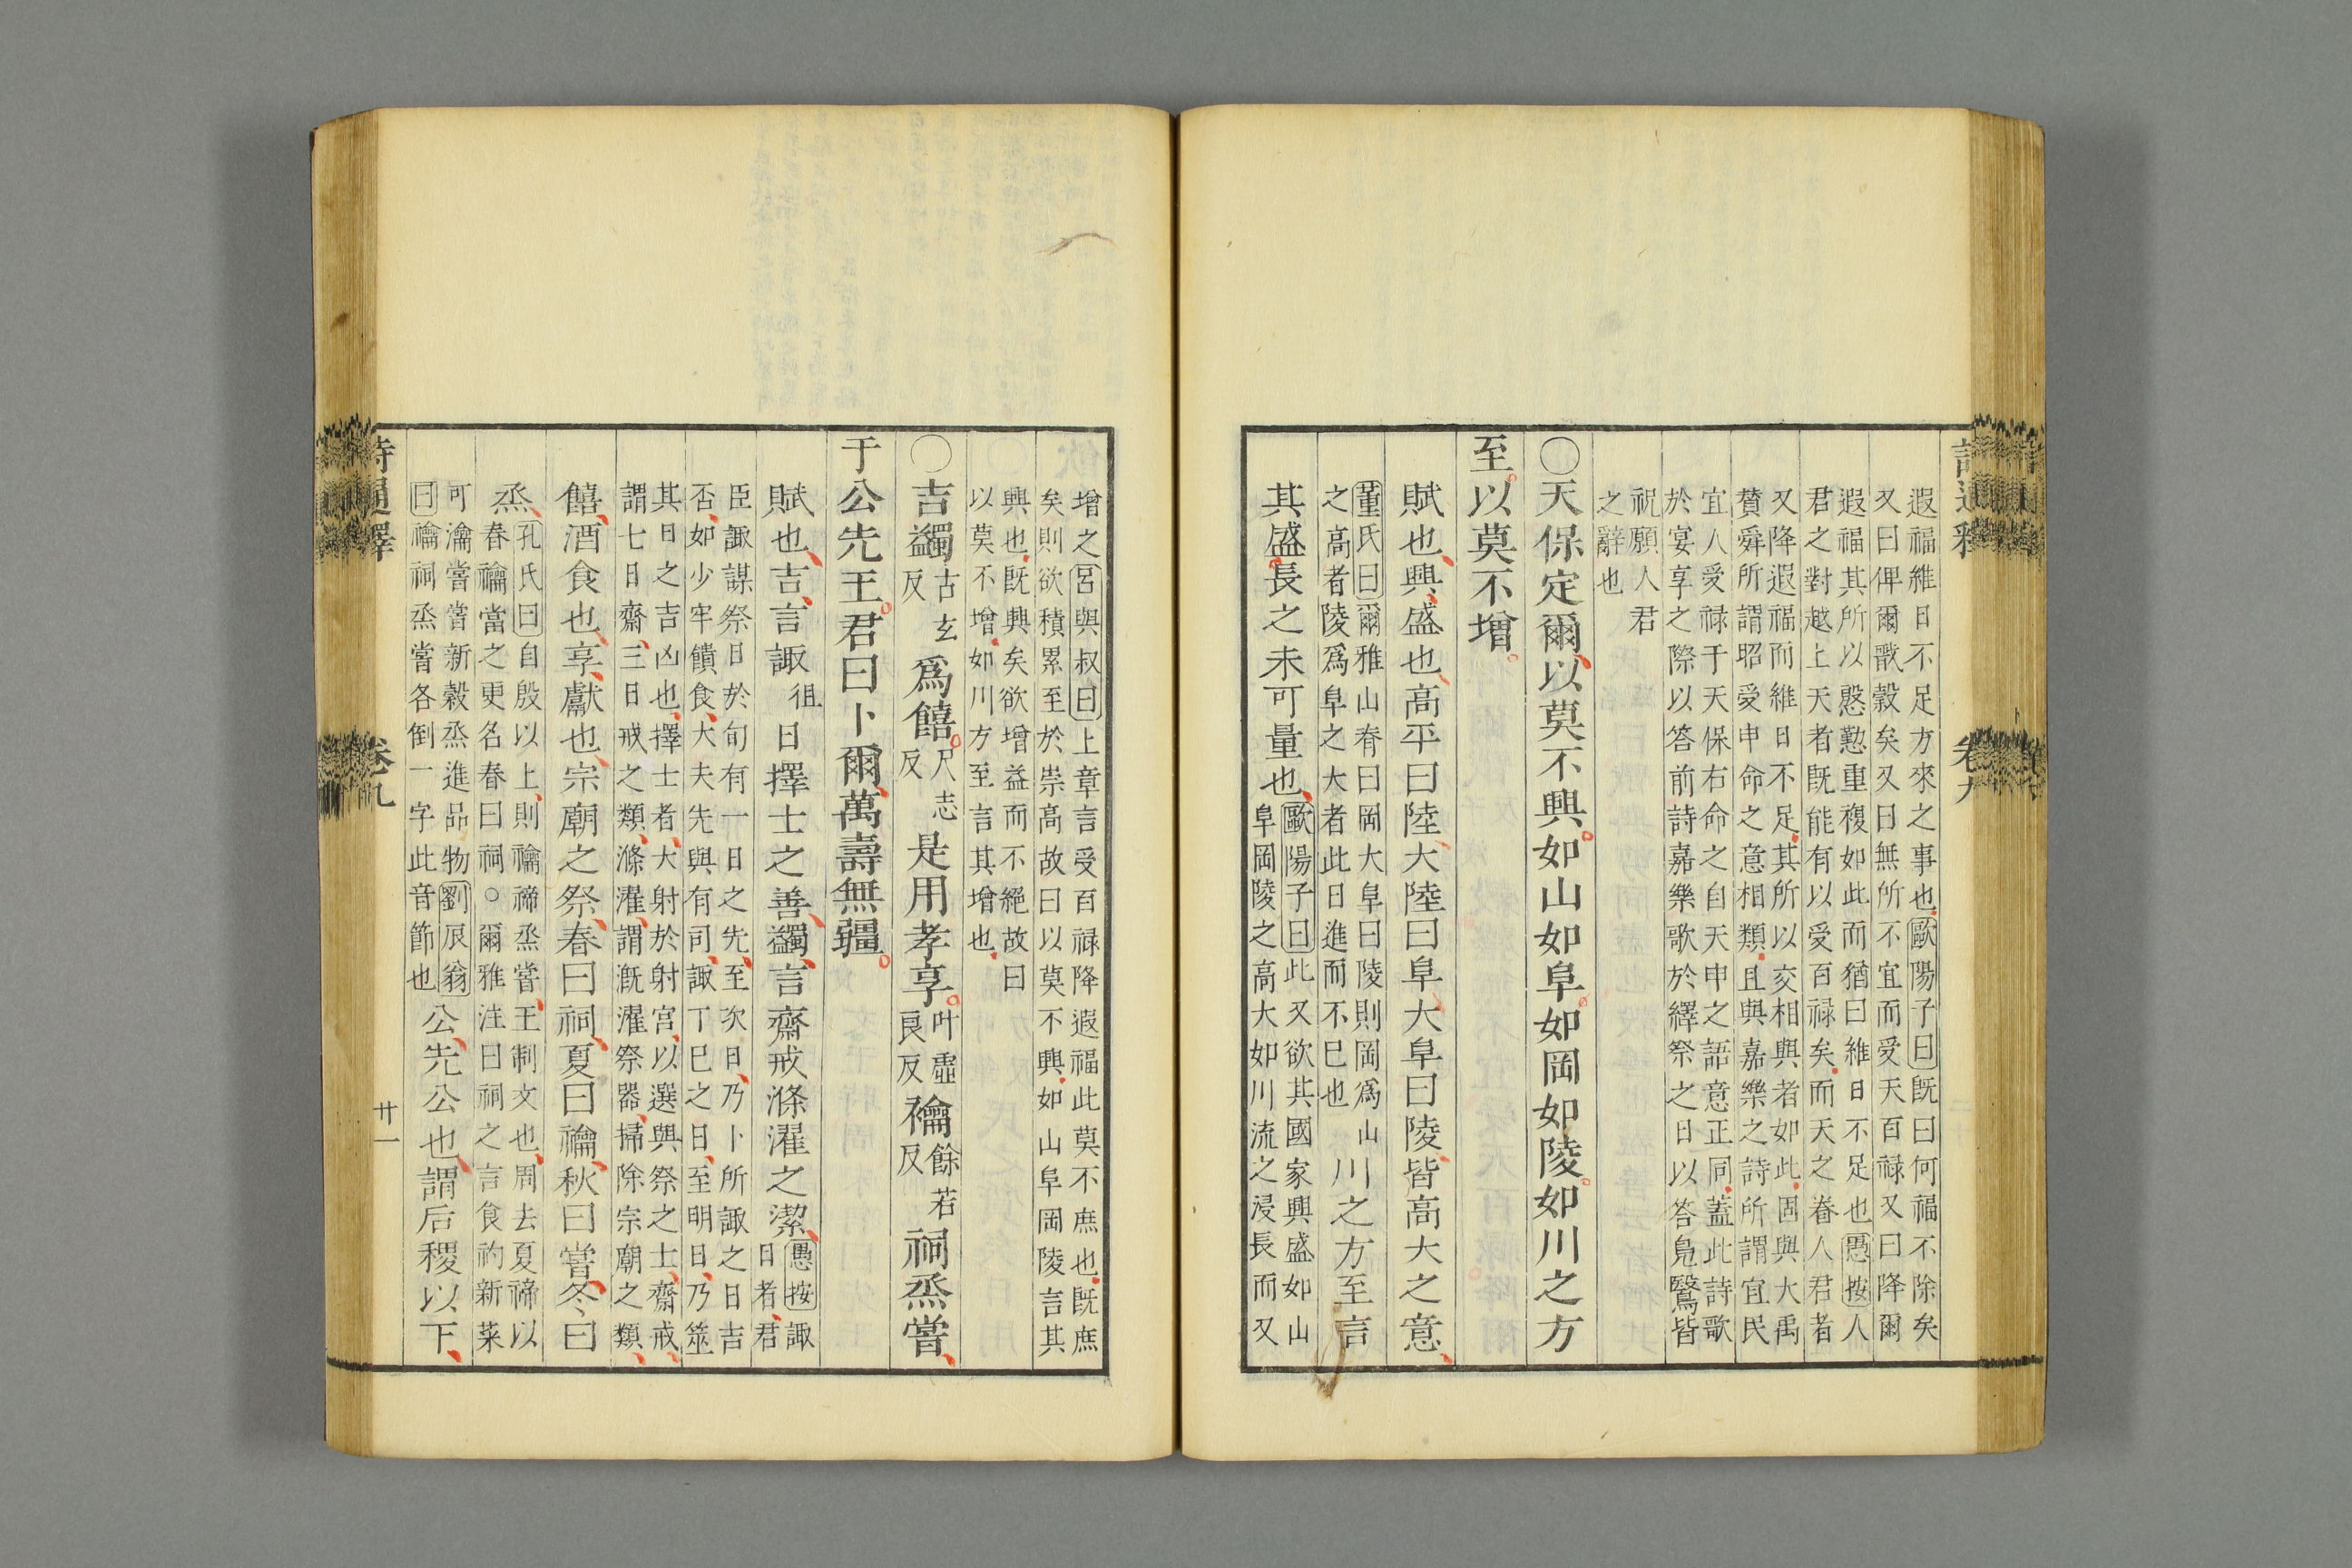 詩通釋
卷九
遐福維日不足方來之事也歐陽子曰既曰何福不除矣
又曰俾爾戩穀矣又曰無所不宜而受天百禄又曰降爾
遐福其所以慇懃重複如此而猶曰維日不足也愚按人
君之對越上天者既能有以受百禄矣而天之眷人君者
又降遐福而維日不足其所以交相與者如此固與大禹
贊舜所謂昭受申命之意相類且與嘉樂之詩所謂宜民
宜人受禄于天保右命之自天申之語意正同蓋此詩歌
於宴享之際以答前詩嘉樂歌於繹祭之日以答鳧鷖皆
祝願人君
之辭也
〇天保定爾以莫不興如山如阜如岡如陵如川之方
至以莫不增
賦也興盛也高平曰陸大陸曰阜大阜曰陵皆高大之意
董氏曰爾雅山脊曰岡大阜曰陵則岡爲山
之高者陵爲阜之大者此日進而不已也
川之方至言
其盛長之未可量也
歐陽子曰此又欲其國家興盛如山
阜岡陵之高大如川流之浸長而又
增之呂與叔曰上章言受百禄降遐福此莫不庶也既庶
矣則欲積累至於崇高故曰以莫不興如山阜岡陵言其
興也既興矣欲增益而不絕故曰
以莫不增如川方至言其增也
〇吉蠲古玄反爲饎尺志反是用孝享叶虛良反禴餘若反祠烝嘗
于公先王君曰卜爾萬壽無疆
賦也吉言諏徂日擇士之善蠲言齋戒滌濯之潔
愚按諏
日者君
臣諏謀祭日於旬有一日之先至次日乃卜所諏之日吉
否如少牢饋食大夫先與有司諏丁巳之日至明日乃筮
其日之吉凶也擇士者大射於射宮以選與祭之士齋戒
謂七日齋三日戒之類滌濯謂漑濯祭器掃除宗廟之類
饎酒食也享獻也宗廟之祭春曰祠夏曰禴秋曰嘗冬曰
烝
孔氏曰自殷以上則禴禘烝嘗王制文也周去夏禘以
春禴當之更名春曰祠○爾雅注曰祠之言食礿新菜
可瀹嘗嘗新穀烝進品物劉辰翁
曰禴祠烝嘗各倒一字此音節也
公先公也謂后稷以下
詩通釋
卷九
廿一